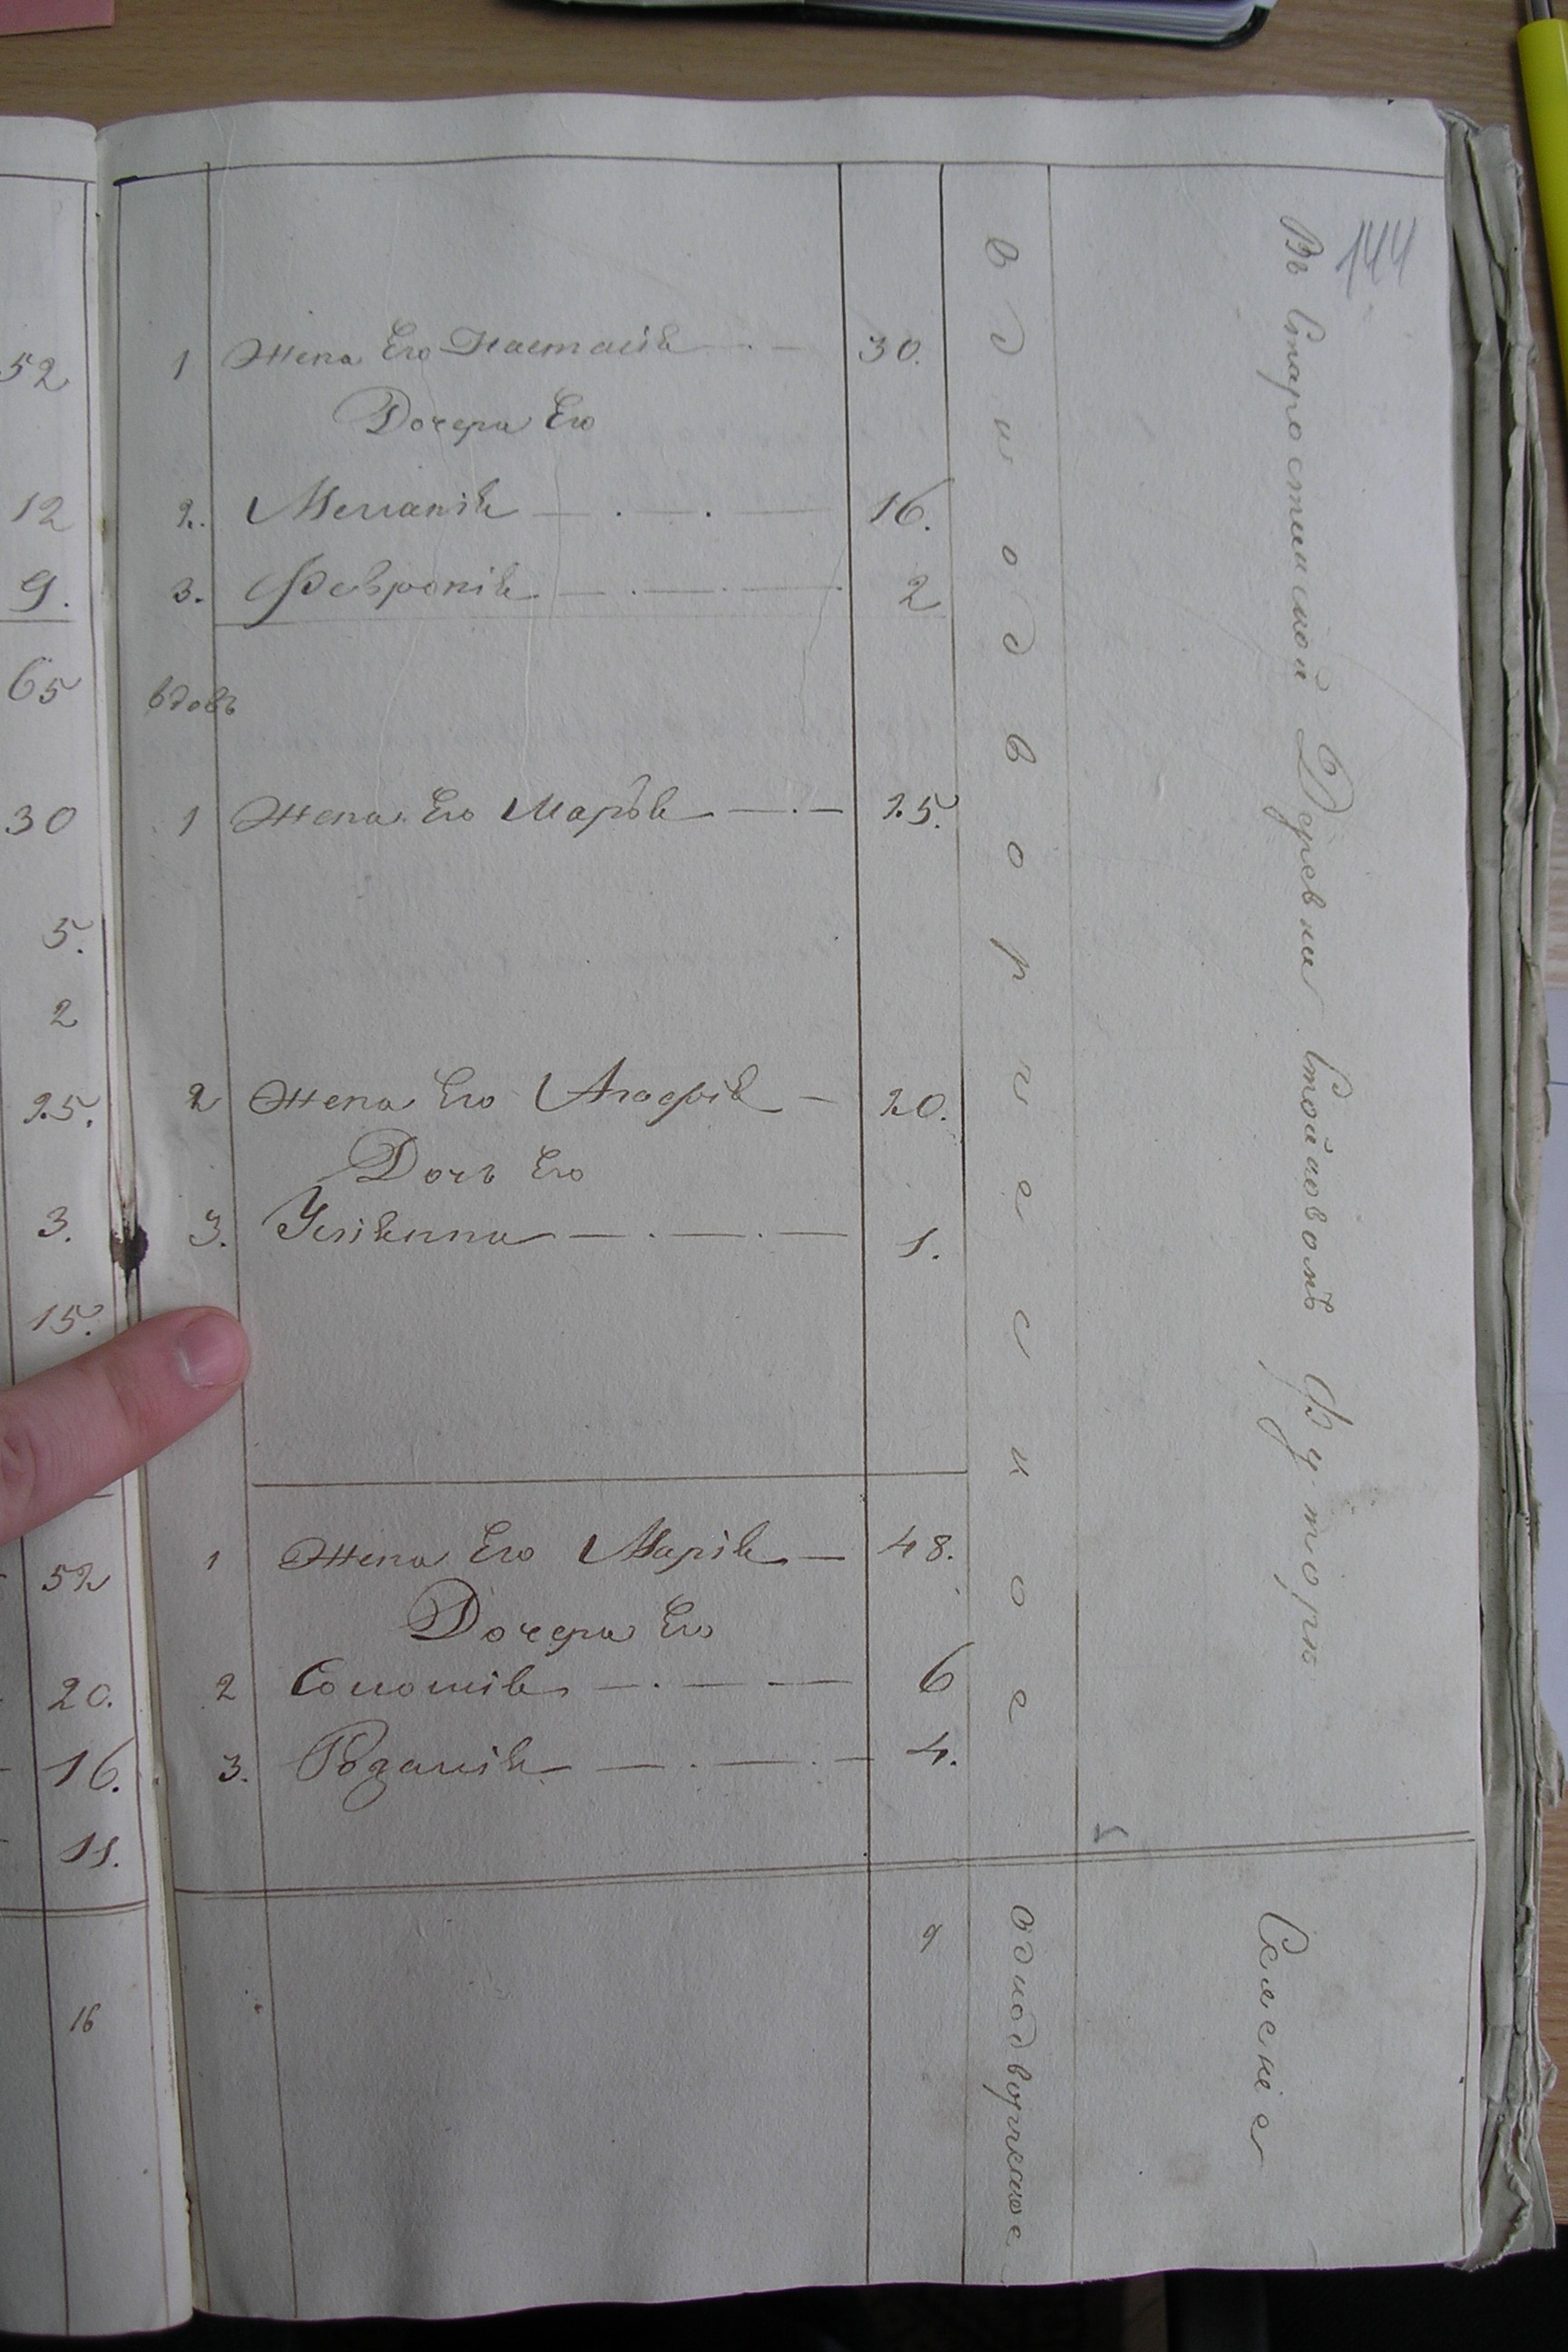 144
52
12
9.
65
30
5.
2
25.
3.
15.
52
20.
16.
11.
16
1 Жена Его Настасія 30.
Дочери Его
2. Меланія 16.
3. Февронія 2
вдовъ
1 Жена Его Марья 25.
2 Жена Его Агафія 20.
Дочь Его
3. Уліянна 1.
1 Жена Его Марія 48.
Дочери Его
2 Соломія 6
3. 4.
9
в д н о д в о р ч е с к о е
Однодворческое
Въ Старостинской Деревни Стойловомъ Футорѣ